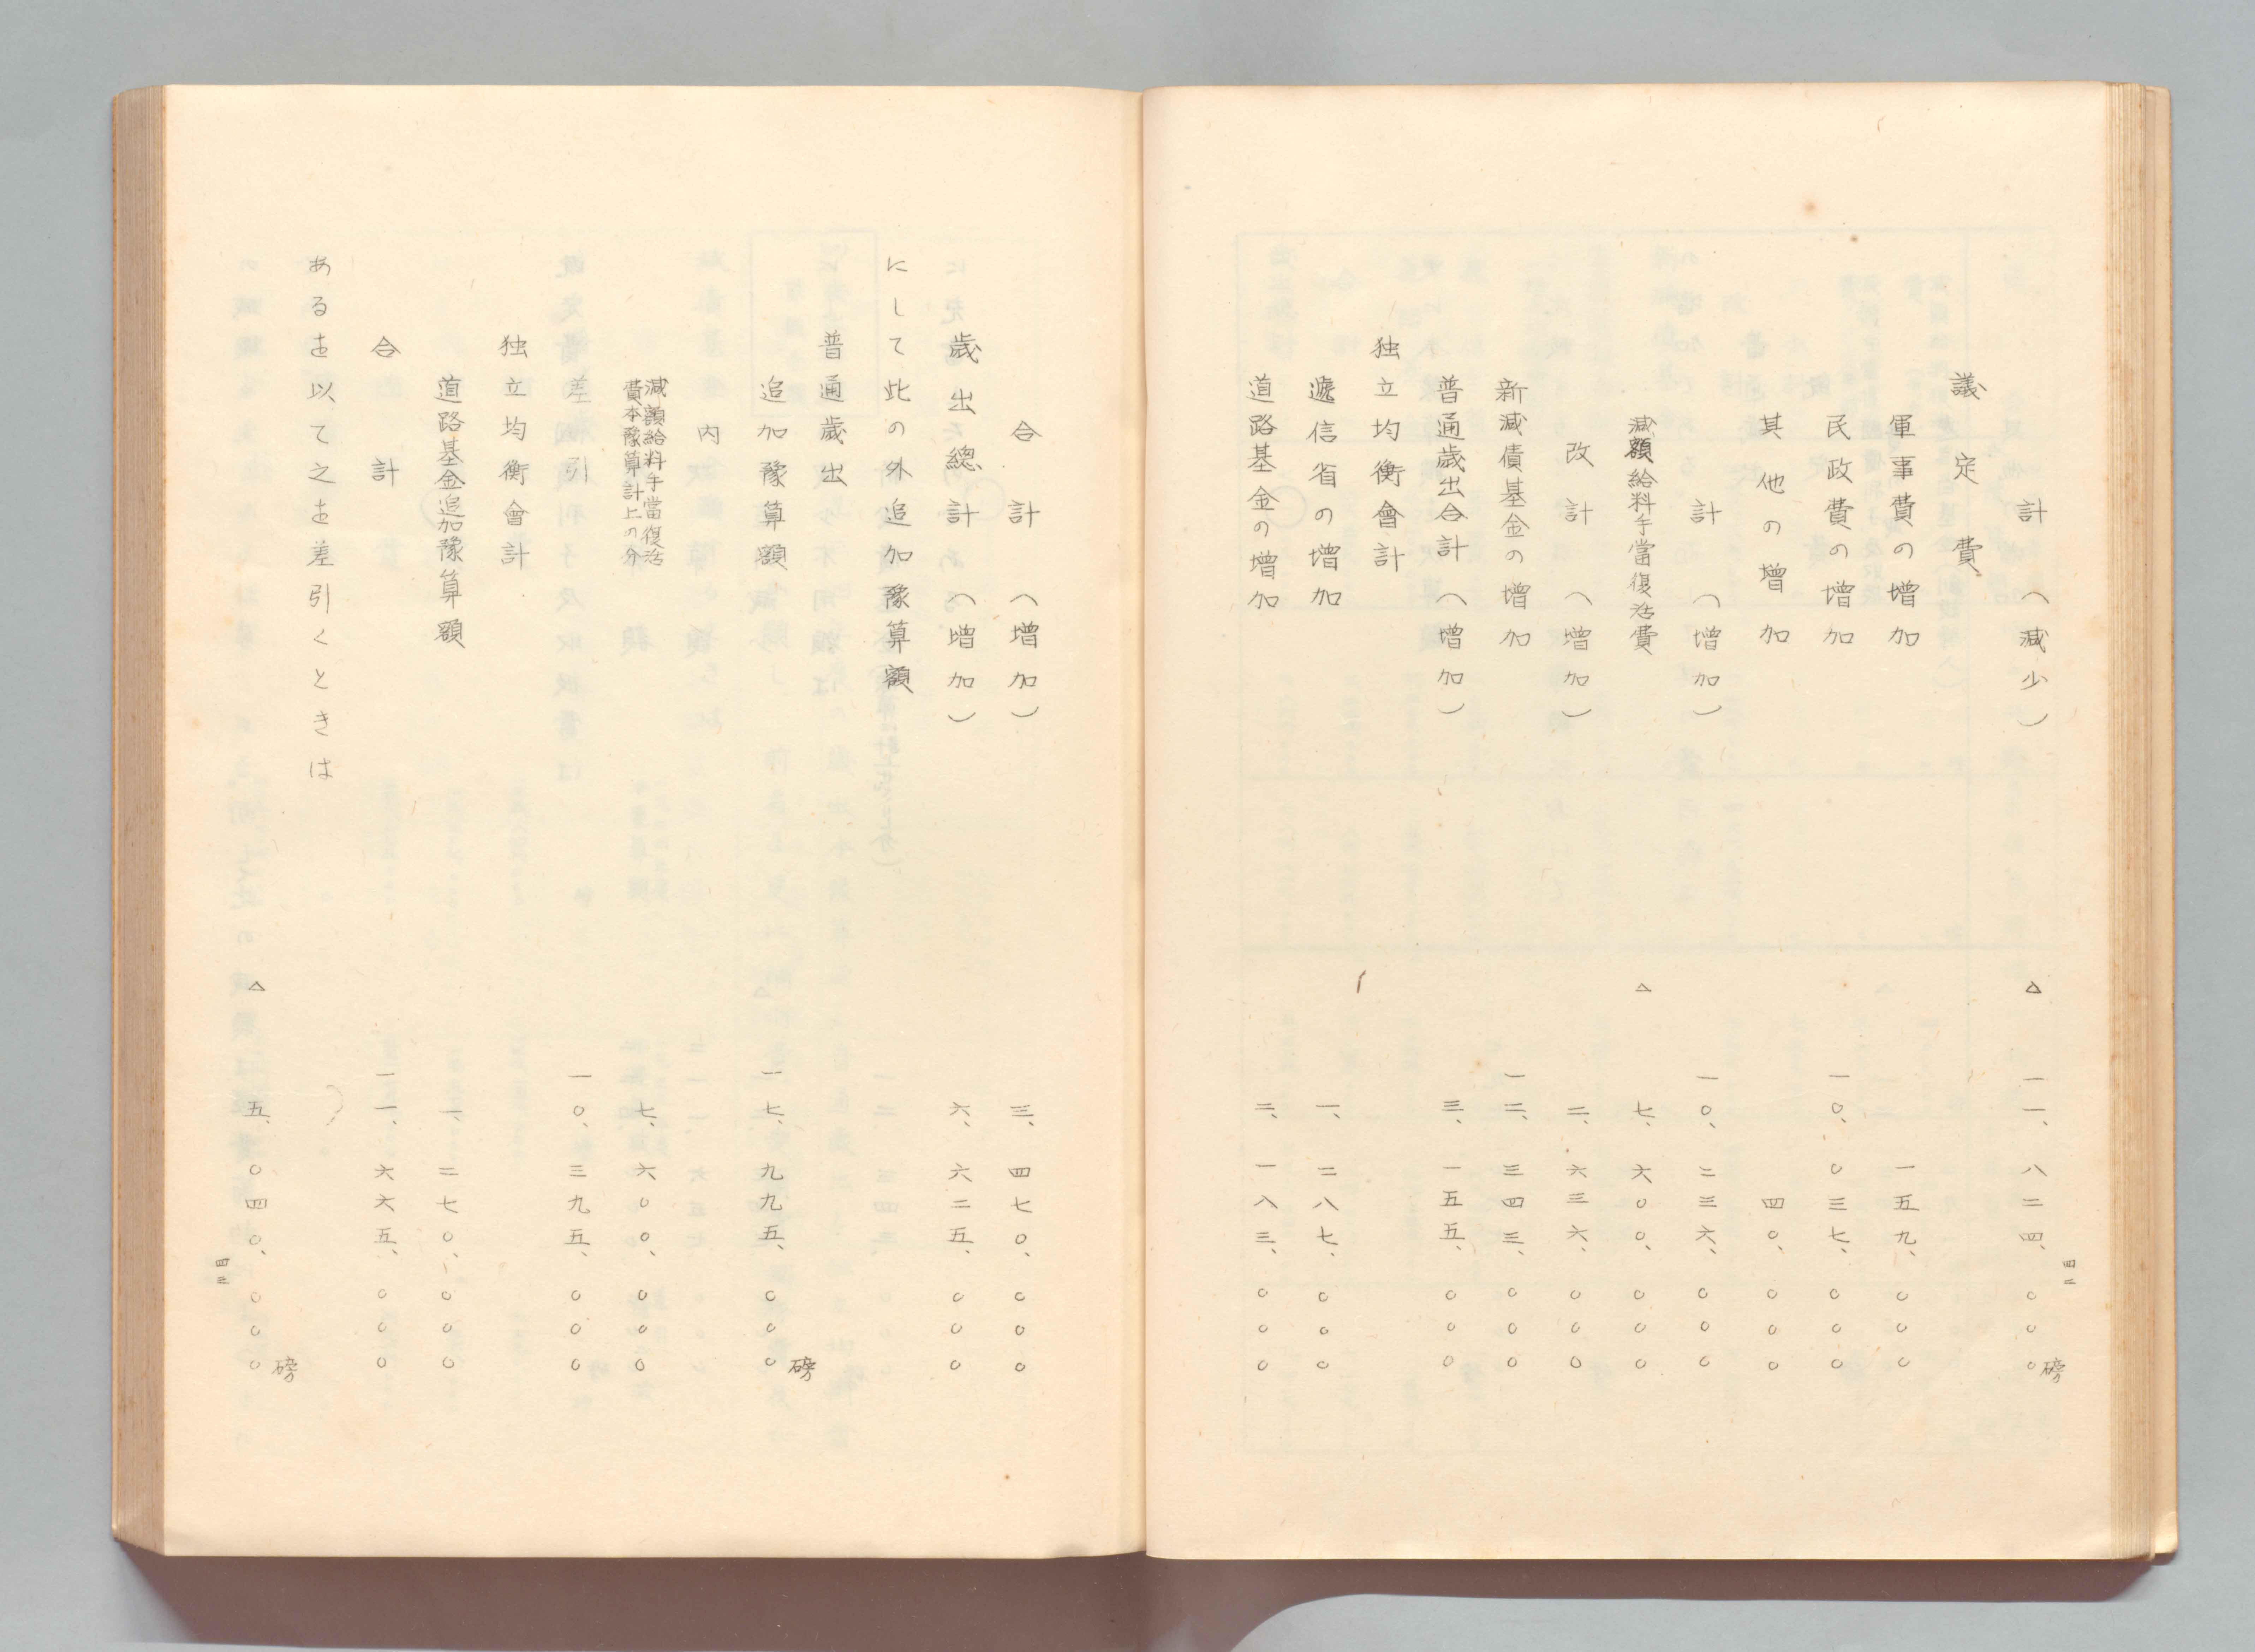 計（減少）　△一一、八二四、〇〇〇磅
議定費
軍事費の増加　一五九、〇〇〇
民政費の増加　一〇、〇三七、〇〇〇
其他の増加　四〇、〇〇〇
計（増加）　一〇、二三六、〇〇〇
減額給料手當復活費　△七、六〇〇、〇〇〇
改計（増加）　二、六三六、〇〇〇
新減債基金の増加　一二、三四三、〇〇〇
普通歳出合計（増加）　三、一五五、〇〇〇
独立均衡會計
遞信省の増加　一、二八七、〇〇〇
道路基金の増加　二、一八三、〇〇〇
四二
合計（増加）　三、四七〇、〇〇〇
歳出總計（増加）　六、六二五、〇〇〇
にして此の外追加豫算額
普通歳出
追加豫算額　一七、九九五、〇〇〇磅
内
減額給料手當復活
費本豫算計上の分　七、六〇〇、〇〇〇
差引　一〇、三九五、〇〇〇
独立均衡會計
道路基金追加豫算額　一、二七〇、〇〇〇
合計　一一、六六五、〇〇〇
あるを以て之を差引くときは
△五、〇四〇、〇〇〇磅
四二